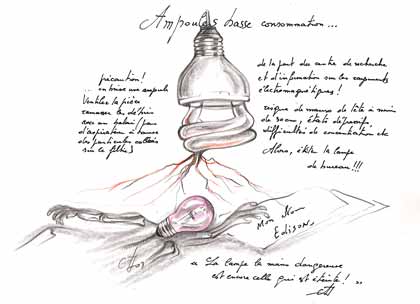 Ampoules basse consommation...
précaution!
.. on brise une ampoule
Ventiler la pièce
ramasser les débris
avec un balai (pas
d'aspiration à cause
des particules
sur le filtre)
de la part du centre de recherche
et d'information sur les rayonnements
électromagnétiques!
risque de maux de tête à moins
de 50cm, états dépressifs,
difficultés de concentration etc
Alors, évitez la lampe
de bureau!!!
Mon Nom
Edison.
" La lampe la moins dangereuse
est encore celle qui est éteinte! "